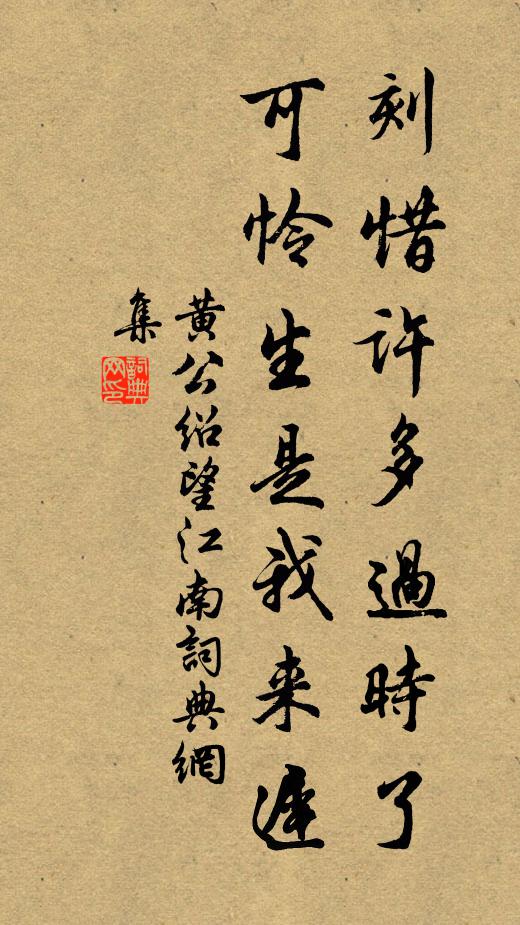 刻惜許多過時了
可怜生是我来遲
黄公紹望江南詞典網
集
詞典网印